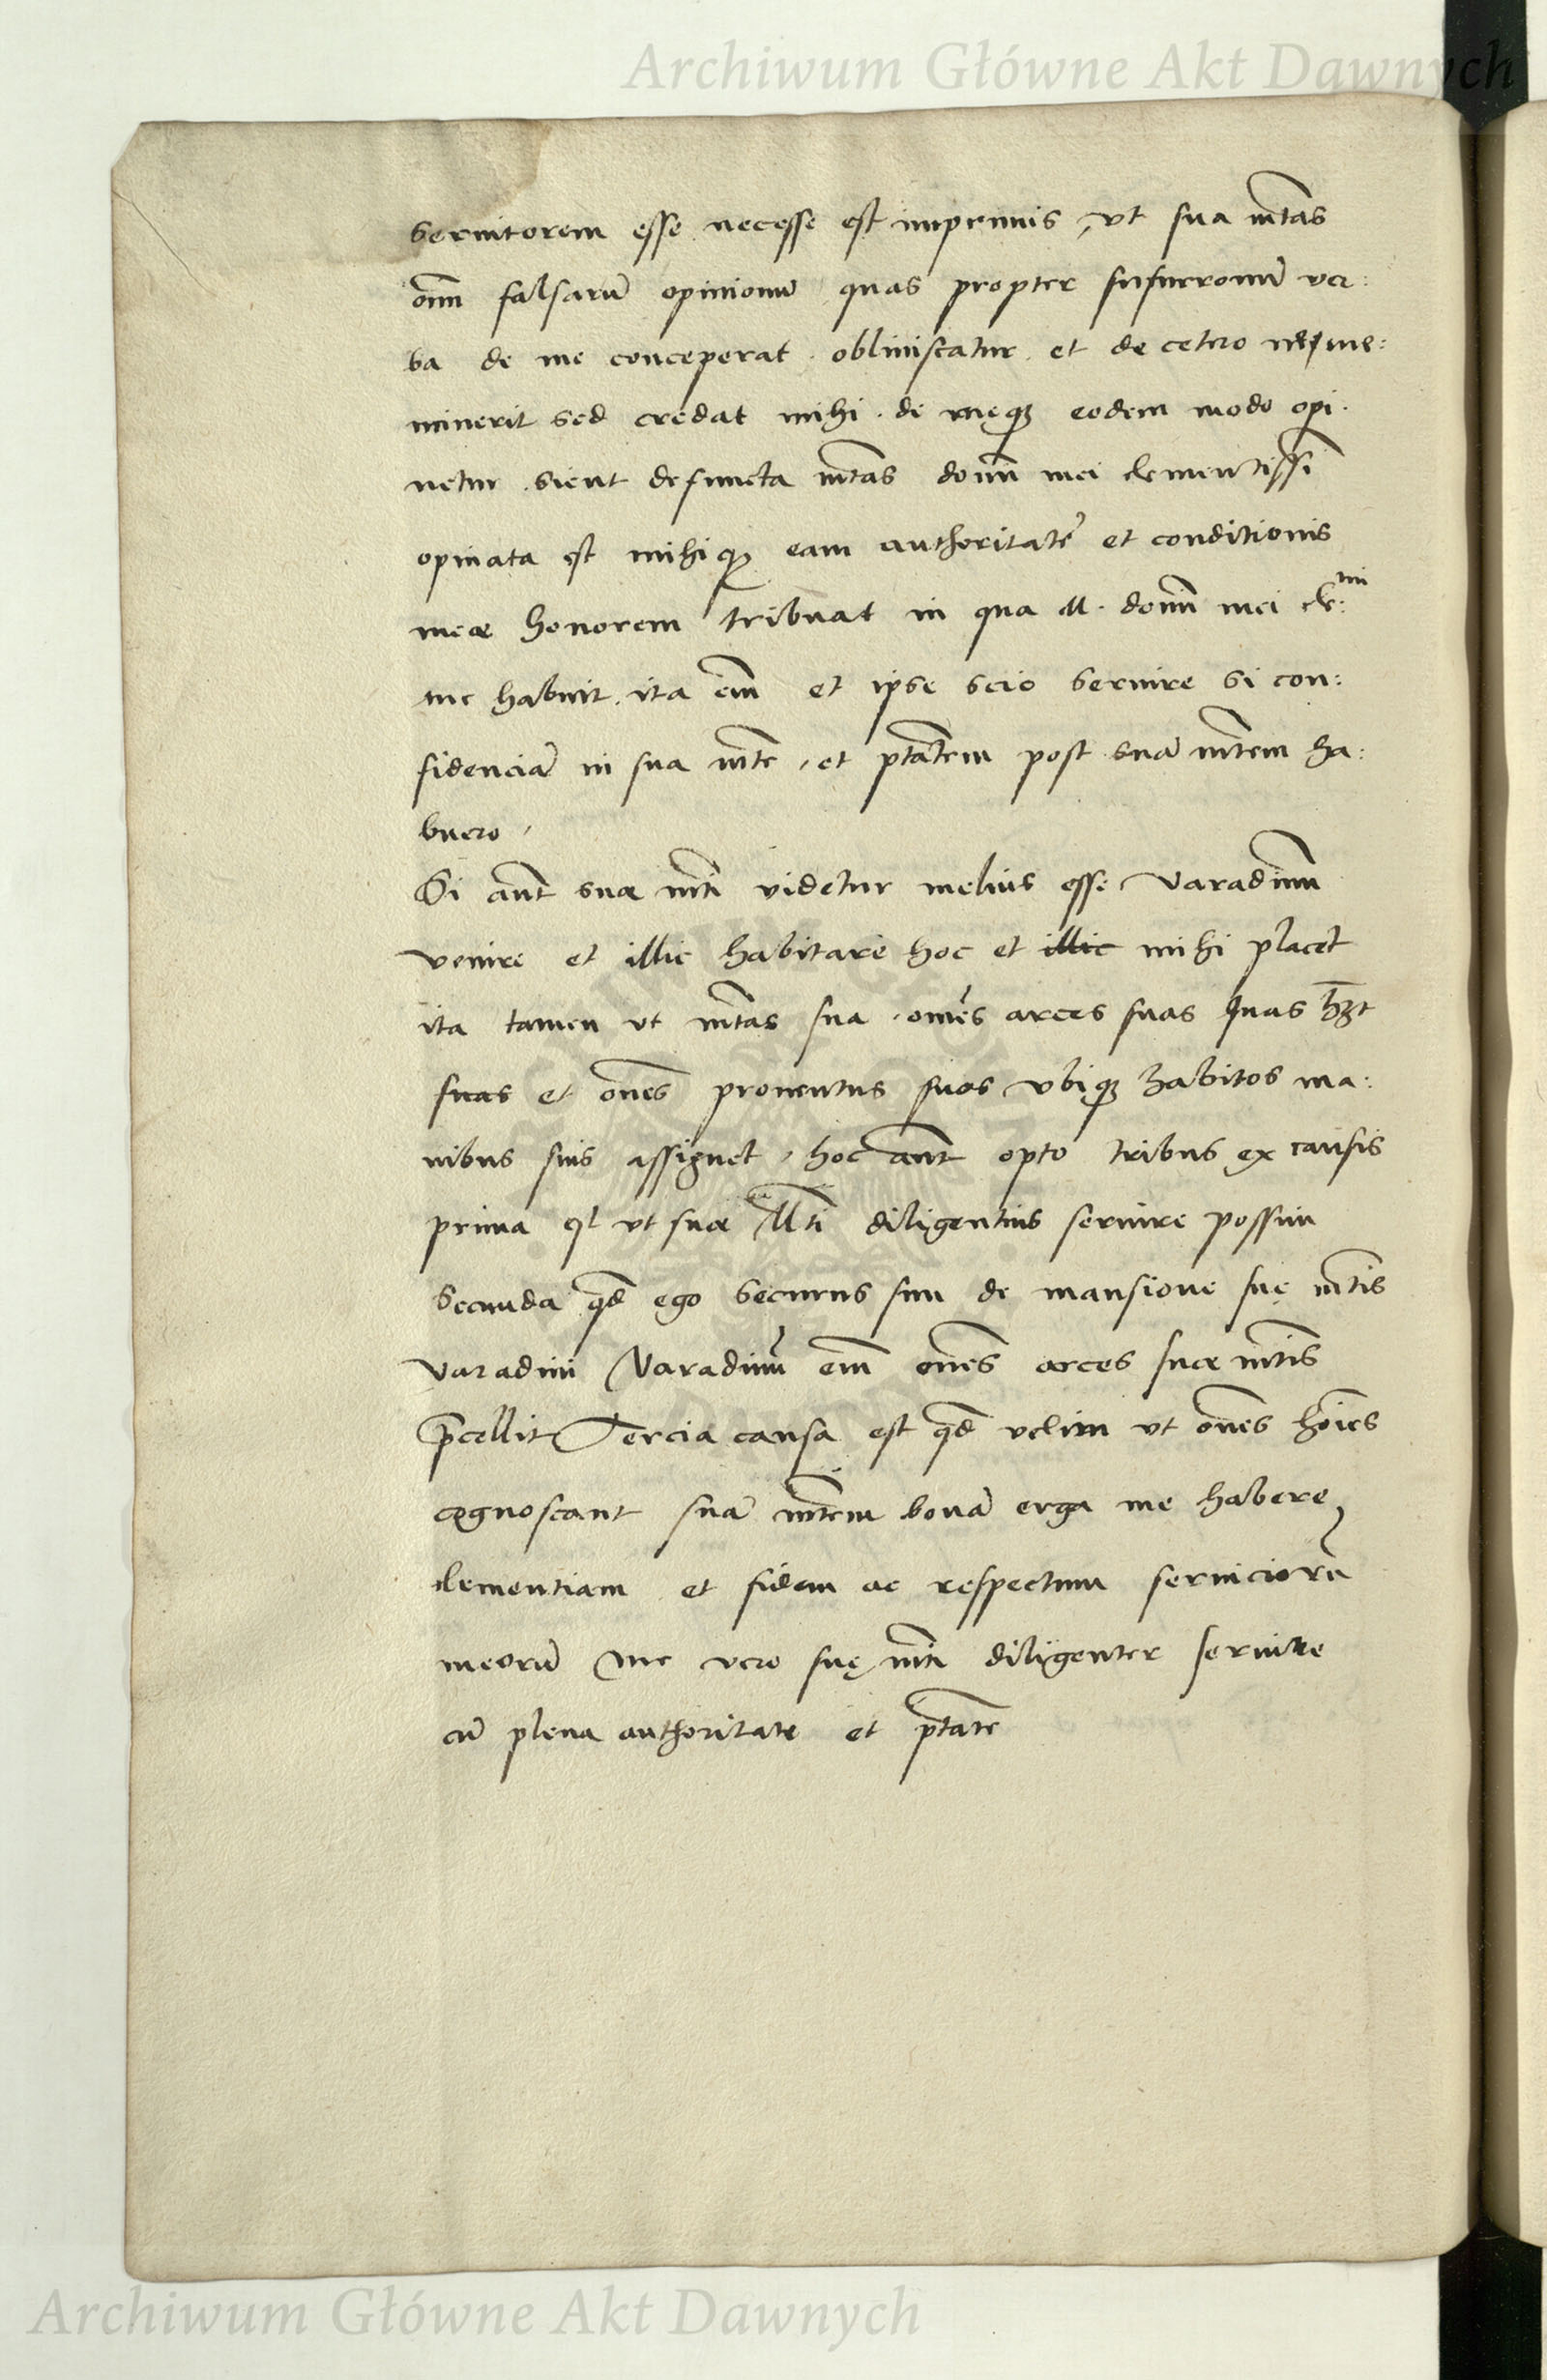 Archiwum Główne Akt Dawnych
seruitorem esse necesse est inprimis, vt sua mtas
oim falsarū opinionū quas propter susurronū ver:
ba de me conceperat obliuiscatur et de cetero ne me:
minerit sed credat mihi de meqꝫ eodem modo opi:
netur sicut defuncta mtas domi mei clementissi
opinata est mihiqꝫ eam authoritatē et conditionis
meæ honorem tribuat in qua M. domi mei cle:mi
me habuit, ita em et ipse scio seruire si con:
fidenciā in sua mte, et ptatem post suā mtem ha:
buero,
Si aut suæ mti videtur melius esse Varadinum
venire et illic habitare hoc et illic mihi placet
ita tamen vt mtas sua omēs arces suas quas hꝫt
suas et omēs prouentus suos vbiqꝫ habitos ma:
nibus suis assignet, hoc aut opto tribus ex causis
prima vt suæ Mti diligentius seruire possim
Secunda qd ego securus sim de mansione suę mtis
varadini Varadinū em omēs arces suæ mtis
p̄cellit Tercia causa est qd velim vt omēs hoīes
cognoscant suā mtem bonā erga me habere
clementiam et fidem ac respectum seruiciorū
meorū me vero suę mti diligenter seruire
cū plena authoritate et ptate
Archiwum Główne Akt Dawnych